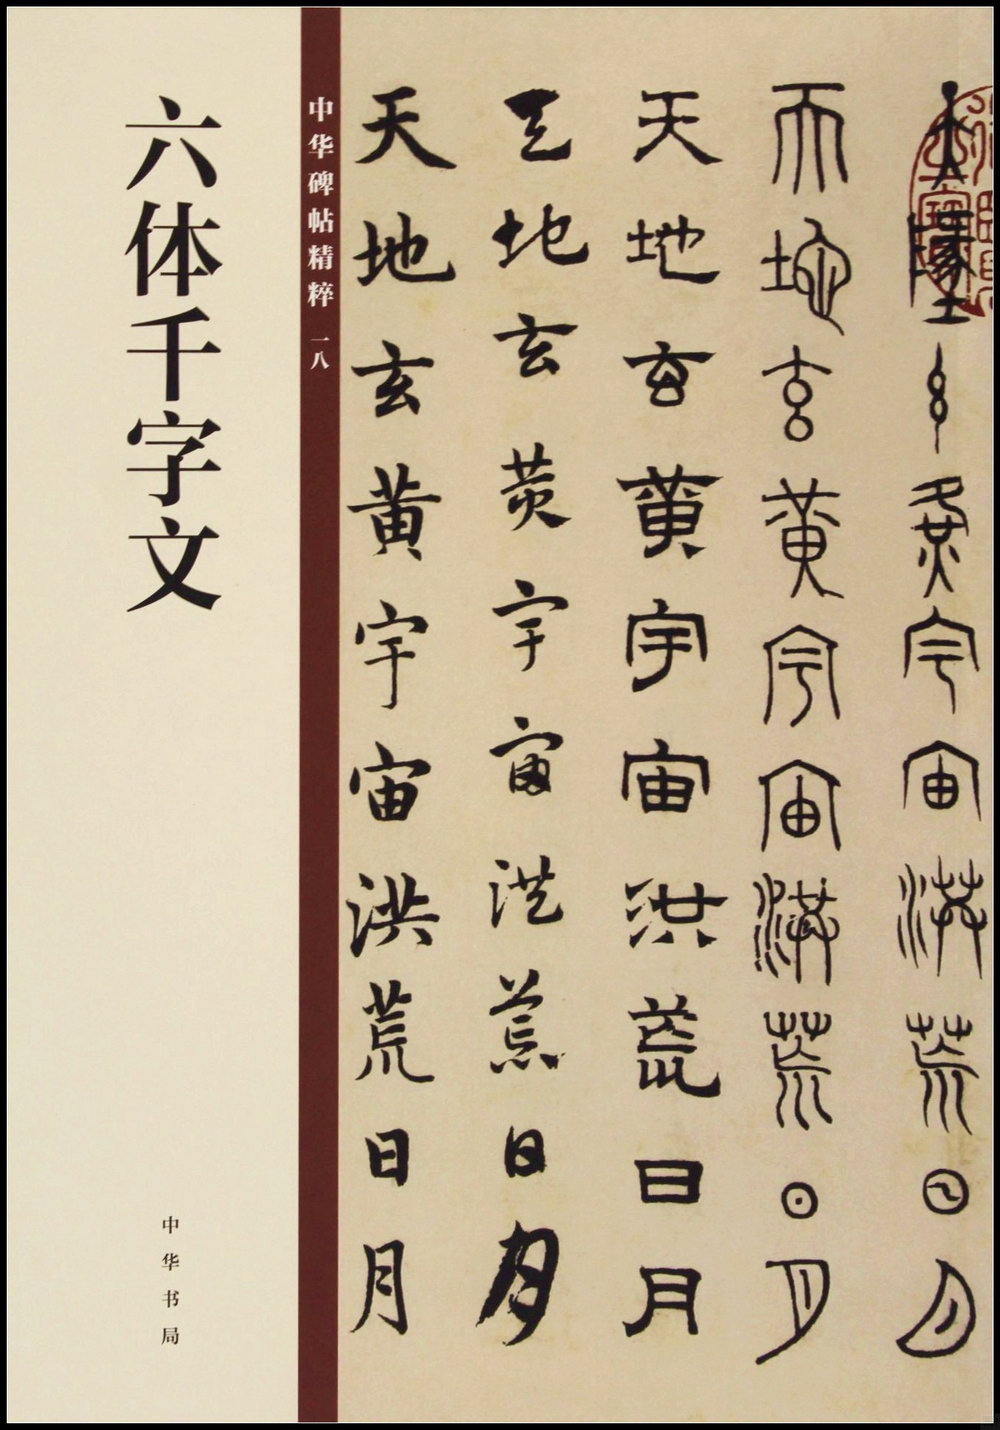 六体千字文
中华碑帖精粹 一八
天地玄黄宇宙洪荒日月
天地玄黄宇宙洪荒日月
天地玄黄宇宙洪荒日月
天地玄黄宇宙洪荒日月
天地玄黄宇宙洪荒日月
中华书局